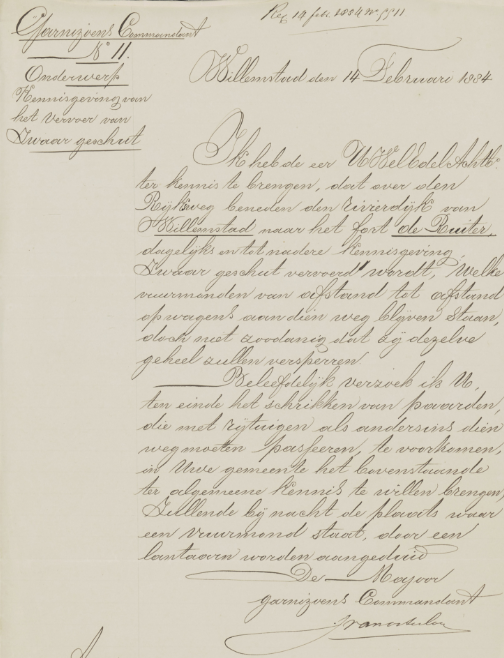 Reg. 14 feb. 1884 No
Garnizoens Commandant
No 11.
Onderwerp
Kennisgeving van
het vervoer van
Zwaar geschut
Willemstad den 14 Februari 1884
Ik heb de eer UWelEdelAchtb
ter kennis te brengen, dat over den
Rijksweg beneden den rivierdijk van
Willemstad naar het fort de Ruiter,
dagelijks en tot nadere kennisgeving,
Zwaar geschut vervoerd wordt, welke
vuurmonden van afstand tot afstand
op wagens aan diën weg blijven staan,
doch niet zoodanig dat zij dezelve
geheel zullen versperren.
Beleefdelijk verzoek ik U,
ten einde het schrikken van paarden,
die met rijtuigen als andersins diën
weg moeten passeeren, te voorkomen,
in Uwe gemeente het bovenstaande
ter algemeene kennis te willen brengen,
Zullende bij nacht de plaats waar
een vuurmond staat, door een
lantaarn worden aangeduid
De Majoor
garnizoens Commandant